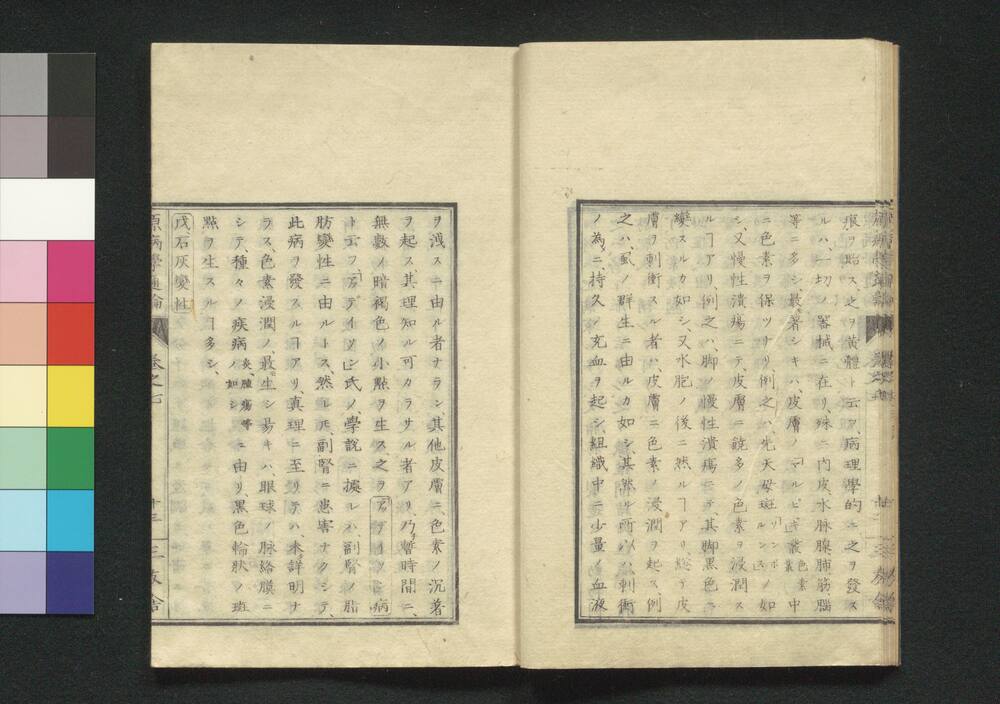 痕ヲ貽ス、之ヲ黄體ト云フ、病理學的ニ之ヲ發ス
ルハ、一切ノ器械ニ在リ、殊ニ内皮、水脉腺、肺、筋、腦
等ニ多シ、最著シキハ、皮膚ノ「マルピギ」叢 色素叢 中
ニ色素ヲ保ツナリ、例之ハ、先天母斑 ノ如
シ、又慢性潰瘍ニテ、皮膚ニ饒多ノ色素ヲ浸潤ス
ルヿアリ、例之ハ、脚ノ慢性潰瘍ニテ、其脚黒色ニ
變スルカ如シ、又水胞ノ後ニ然ルヿアリ、總テ皮
膚ヲ刺衝スル者ハ、皮膚ニ色素ノ浸潤ヲ起ス、例
之ハ、虱ノ群生ニ由ルカ如シ、其然ル所以ハ、刺衝
ノ為ニ、持久ノ充血ヲ起シ、組織中ニ少量ノ血液
ヲ洩スニ由ル者ナラン、其他皮膚ニ、色素ノ沉着
ヲ起ス、其理知ル可カラサル者アリ、乃暫時間ニ、
無數ノ暗褐色ノ小點ヲ生ス、之ヲアヂイソン病
ト云フ、アヂイソン氏ノ學說ニ據レハ、副腎ノ脂
肪變性ニ由ルトス、然レ𪜈、副腎ニ患害ナクシテ、
此病ヲ發スルヿアリ、真理ニ至リテハ、未詳明ナ
ラス、色素浸潤ノ、最生シ易キハ、眼球ノ脉絡膜ニ
シテ、種々ノ疾病ノ 炎、腫瘍等ノ如シ ニ由リ、黒色輪狀ノ斑
點ヲ生スルヿ多シ、
戊石灰變性
原病學通論 卷之七 廿三 三友舎